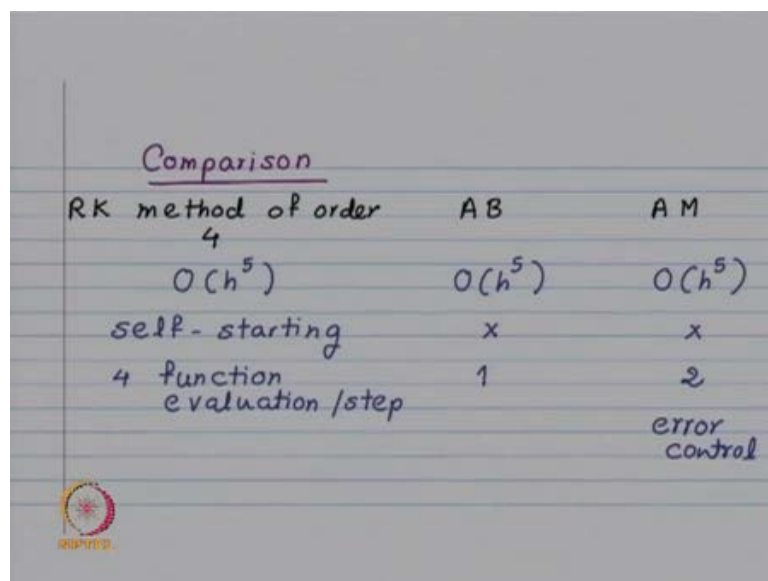 Comparison
RK method of order AB AM
4
O(h⁵) O(h⁵) O(h⁵)
self-starting x x
4 function 1 2
evaluation/step
error
control
NPTEL